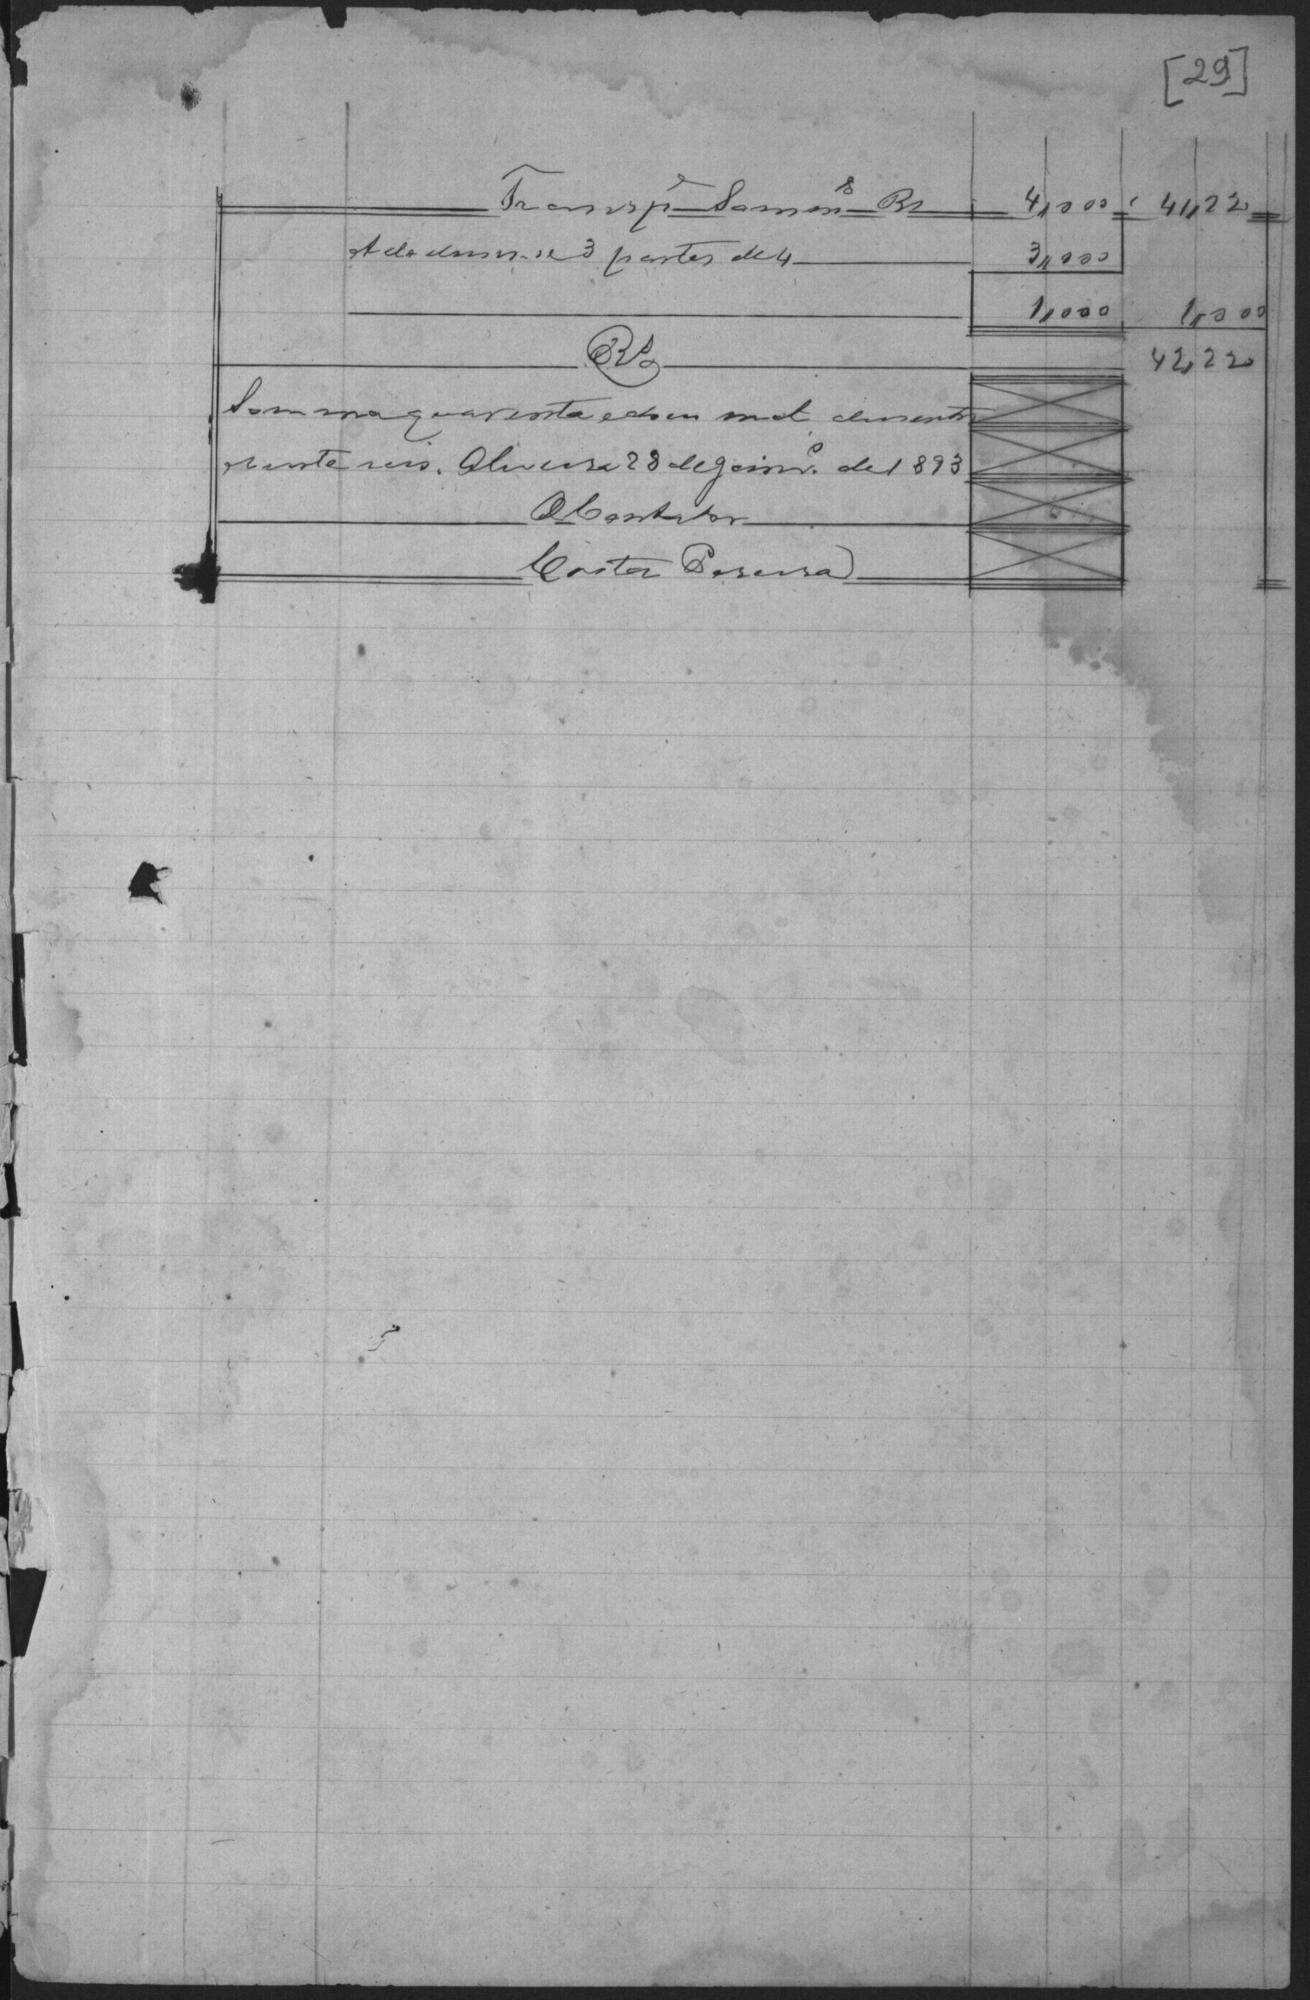 [29]
Transp.e Somma Rs 4,000 41,22
A dedusir-se 3 partes de 4 3,000
1,000 1,000
Rs 42,22
Somma quarenta e dous mil dusentos
e vinte reis. Oliveira 28 de Janr.o de 1893
O Contador
Costa Pereira